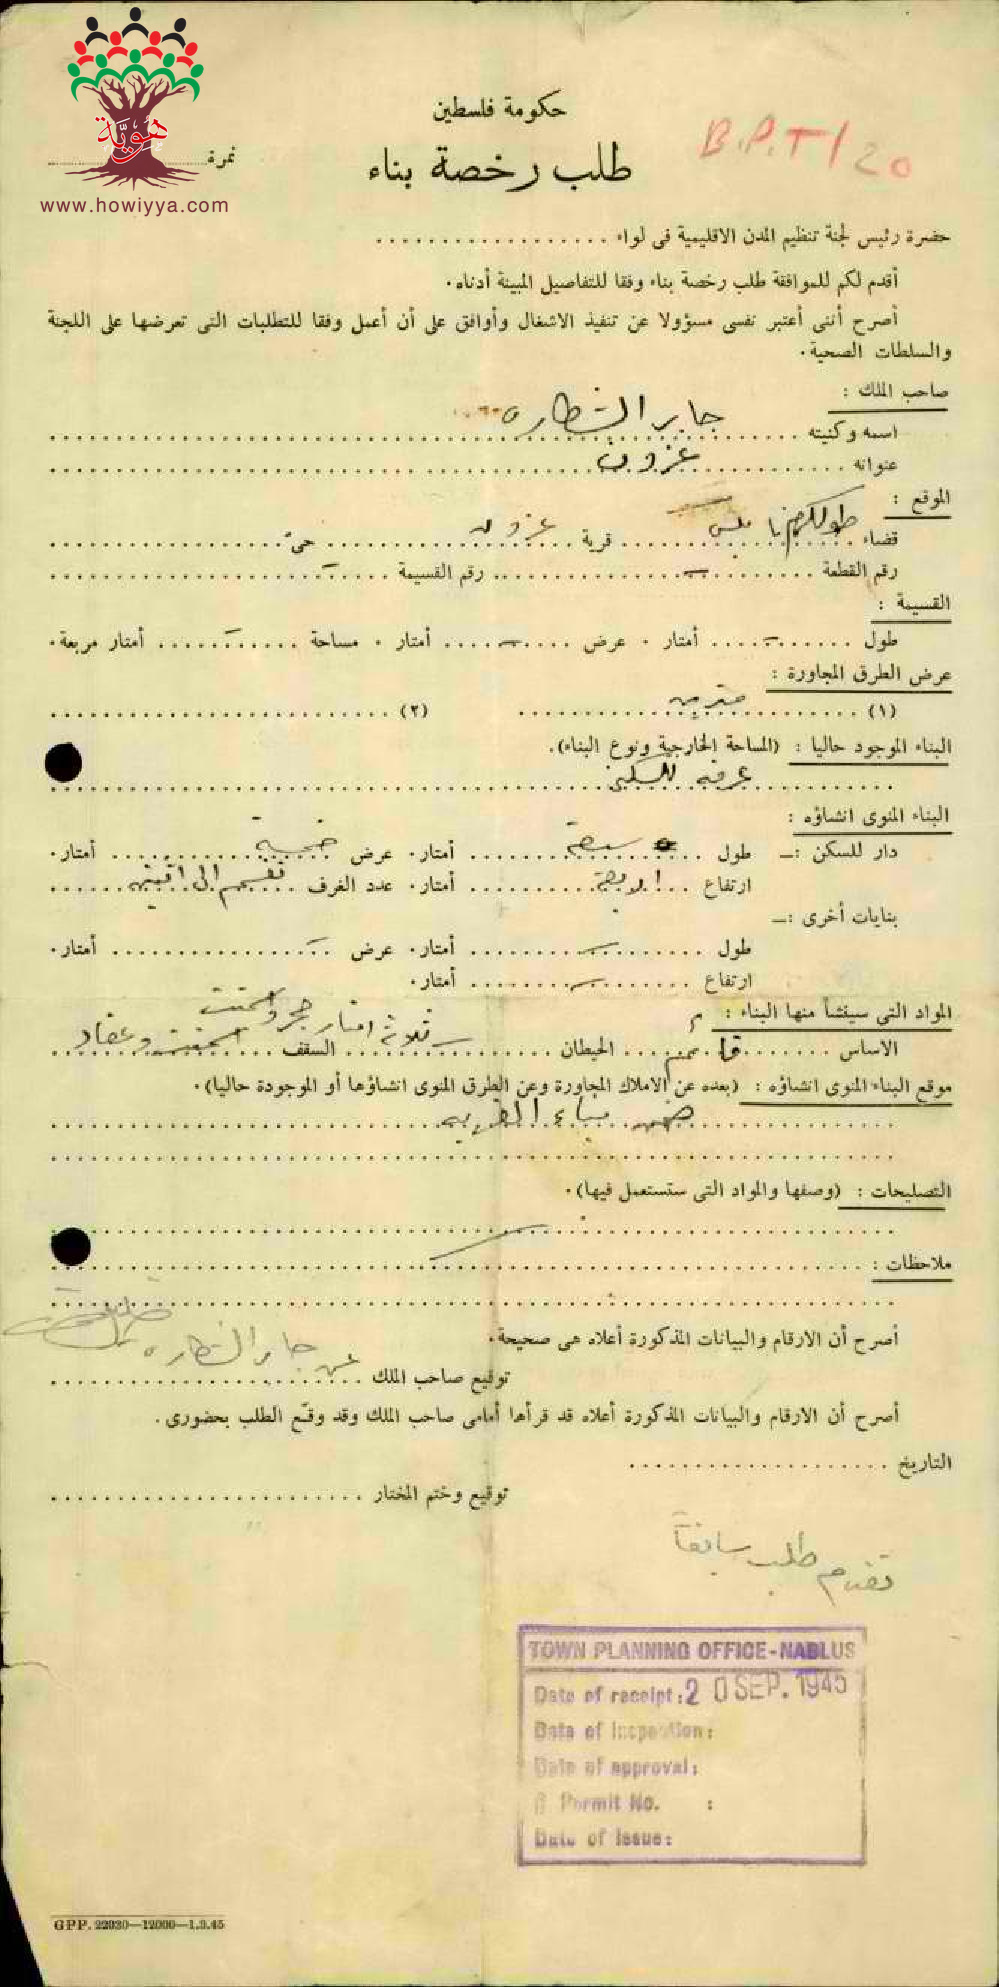 هوية
www.howiyya.com
B.P.T/20
حكومة فلسطين
طلب رخصة بناء
نمرة
حضرة رئيس لجنة تنظيم المدن الاقليمية في لواء
أقدم لكم للموافقة طلب رخصة بناء وفقا للتفاصيل المبينة أدناه.
أصرح أنني أعتبر نفسي مسؤولا عن تنفيذ الاشغال وأوافق على أن أعمل وفقا للمتطلبات التي تعرضها على اللجنة
والسلطات الصحية.
صاحب الملك :
اسمه وكنيته جابر الشطاره
عنوانه عزون
الموقع :
قضاء طولكرم نابلس قرية عزون حيّ
رقم القطعة – رقم القسيمة –
القسيمة :
طول – أمتار . عرض – أمتار . مساحة – أمتار مربعة.
عرض الطرق المجاورة :
(١) مترين (٢)
البناء الموجود حاليا : (المساحة الخارجية ونوع البناء).
غرفه للسكن
البناء المنوى انشاؤه :
دار للسكن :— طول سبعة أمتار. عرض خمسة أمتار.
ارتفاع اربعة أمتار. عدد الغرف تقسم الى اثنين
بنايات أخرى :—
طول – أمتار. عرض – أمتار.
ارتفاع – أمتار.
المواد التي سينشأ منها البناء :
الاساس قائم الحيطان ثلاثة امتار حجر واسمنت السقف اسمنت وعقاد
موقع البناء المنوى انشاؤه : (بعده عن الاملاك المجاورة وعن الطرق المنوى انشاؤها أو الموجودة حاليا).
ضمن بناء القريه
التصليحات : (وصفها والمواد التي ستستعمل فيها).
ملاحظات :
أصرح أن الارقام والبيانات المذكورة أعلاه هي صحيحة.
توقيع صاحب الملك عن جابر الشطاره
أصرح أن الارقام والبيانات المذكورة أعلاه قد قرأها أمامي صاحب الملك وقد وقّع الطلب بحضوري.
التاريخ
توقيع وختم المختار
تقدم طلب سابقاً
TOWN PLANNING OFFICE-NABLUS
Date of receipt: 20 SEP. 1945
Date of Inspection:
Date of approval:
Permit No. :
Date of Issue:
GPP. 22930—12000—1.3.45